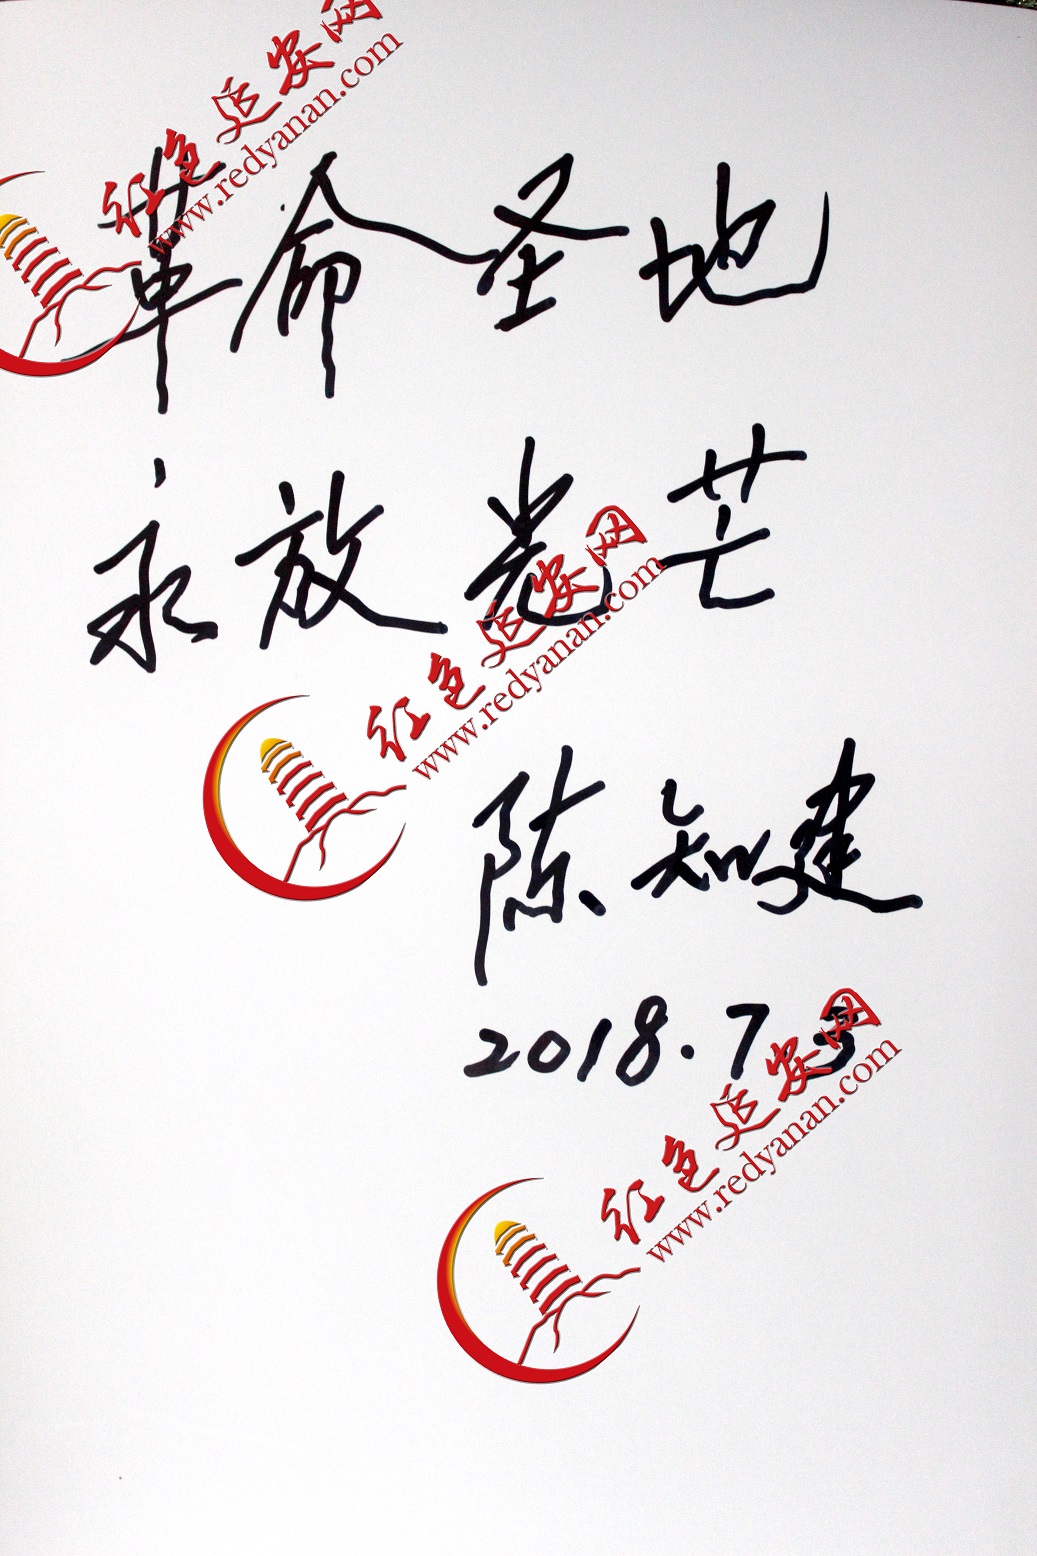 红色延安网
www.redyanan.com
革命圣地
永放光芒
红色延安网
www.redyanan.com
陈知建
2018.7.3
红色延安网
www.redyanan.com